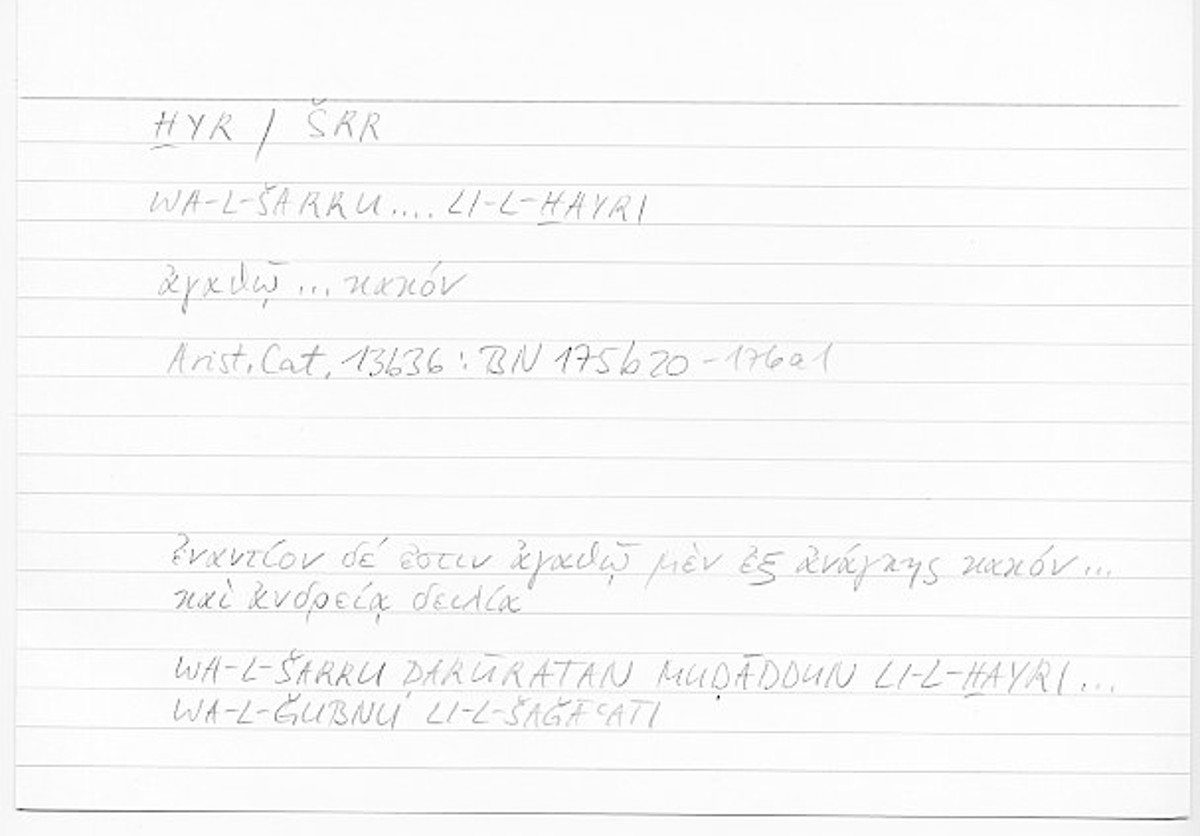 ḪYR / ŠRR
WA-L-ŠARRU.... LI-L-ḪAYRI
ἀγαθῷ ... κακόν
Arist. Cat. 13b36 : BN 175b20 - 176a1
ἐναντίον δέ ἐστιν ἀγαθῷ μὲν ἐξ ἀνάγκης κακόν...
καὶ ἀνδρείᾳ δειλία
WA-L-ŠARRU ḌARŪRATAN MUḌĀDDUN LI-L-ḪAYRI...
WA-L-ǦUBNU LI-L-ŠAǦĀʿATI